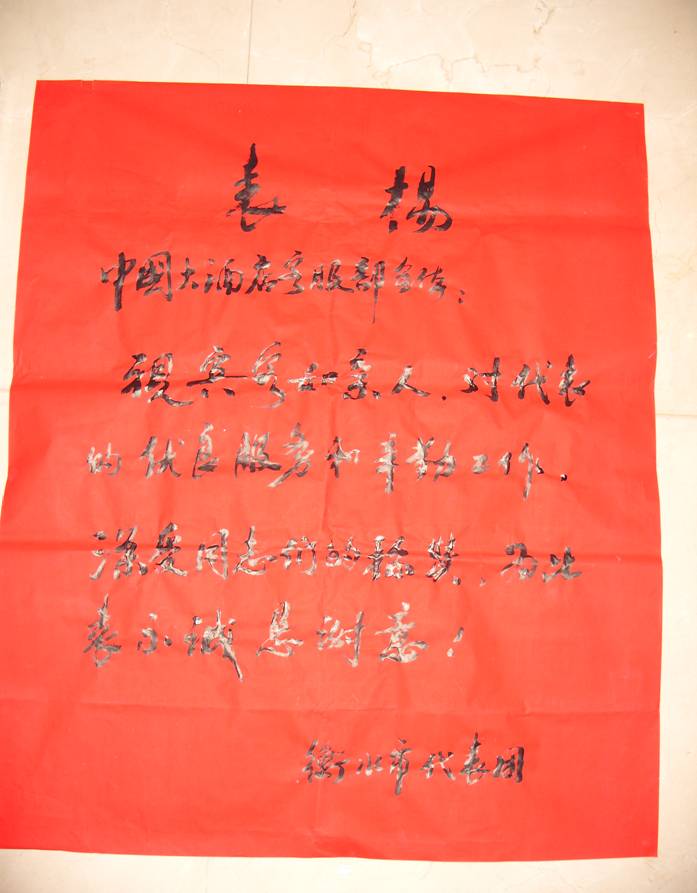 表扬
中国大酒店客服部全体:
视宾客如亲人.对代表
的优良服务和辛勤工作.
深受同志们的称赞.为此
表示诚恳谢意!
衡水市代表团